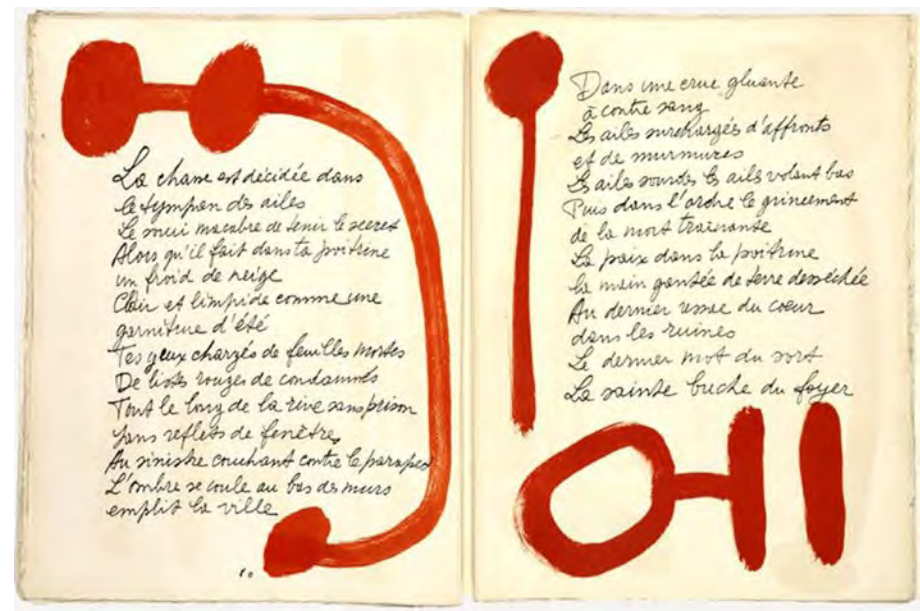 La chance est décidée dans
le tympan des ailes
Le souci macabre de tenir le secret
Alors qu'il fait dans ta poitrine
un froid de neige
Clair et limpide comme une
garniture d'été
Tes yeux chargés de feuilles mortes
De listes rouges de condamnés
Tout le long de la rive sans prison
Sans reflets de fenêtres
Au sinistre couchant contre le parapet
L'ombre se coule au bas des murs
emplit la ville
Dans une crue gluante
à contre sang
Les ailes surchargés d'affronts
et de murmures
Les ailes sourdes les ailes volant bas
Puis dans l'ordre le grincement
de la mort traînante
La paix dans la poitrine
la main gantée de terre desséchée
Au dernier ressac du coeur
dans les ruines
Le dernier mot du sort
La sainte buche du foyer